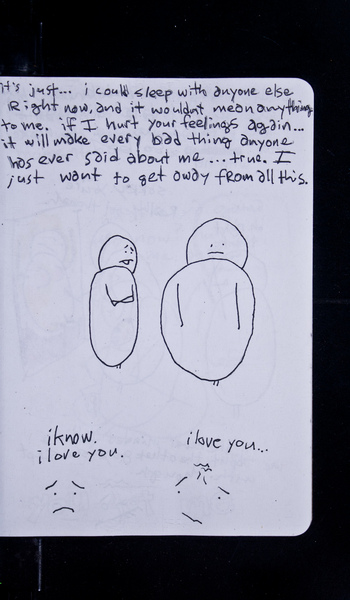 it's just... i could sleep with anyone else
Right now, and it wouldnt mean anything
to me. if I hurt your feelings again...
it will make every bad thing anyone
has ever said about me... true. I
just want to get away from all this.
i know.
i love you.
i love you...